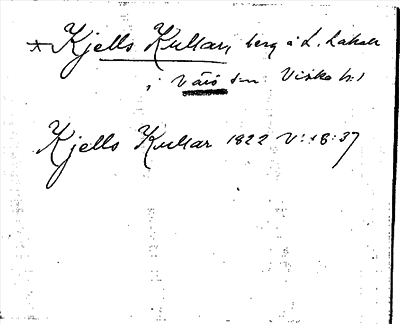 Kjells Kullar, berg å L. Lakab
i Värö sn. Viske h:d
Kjells Kullar 1822 V:18:37